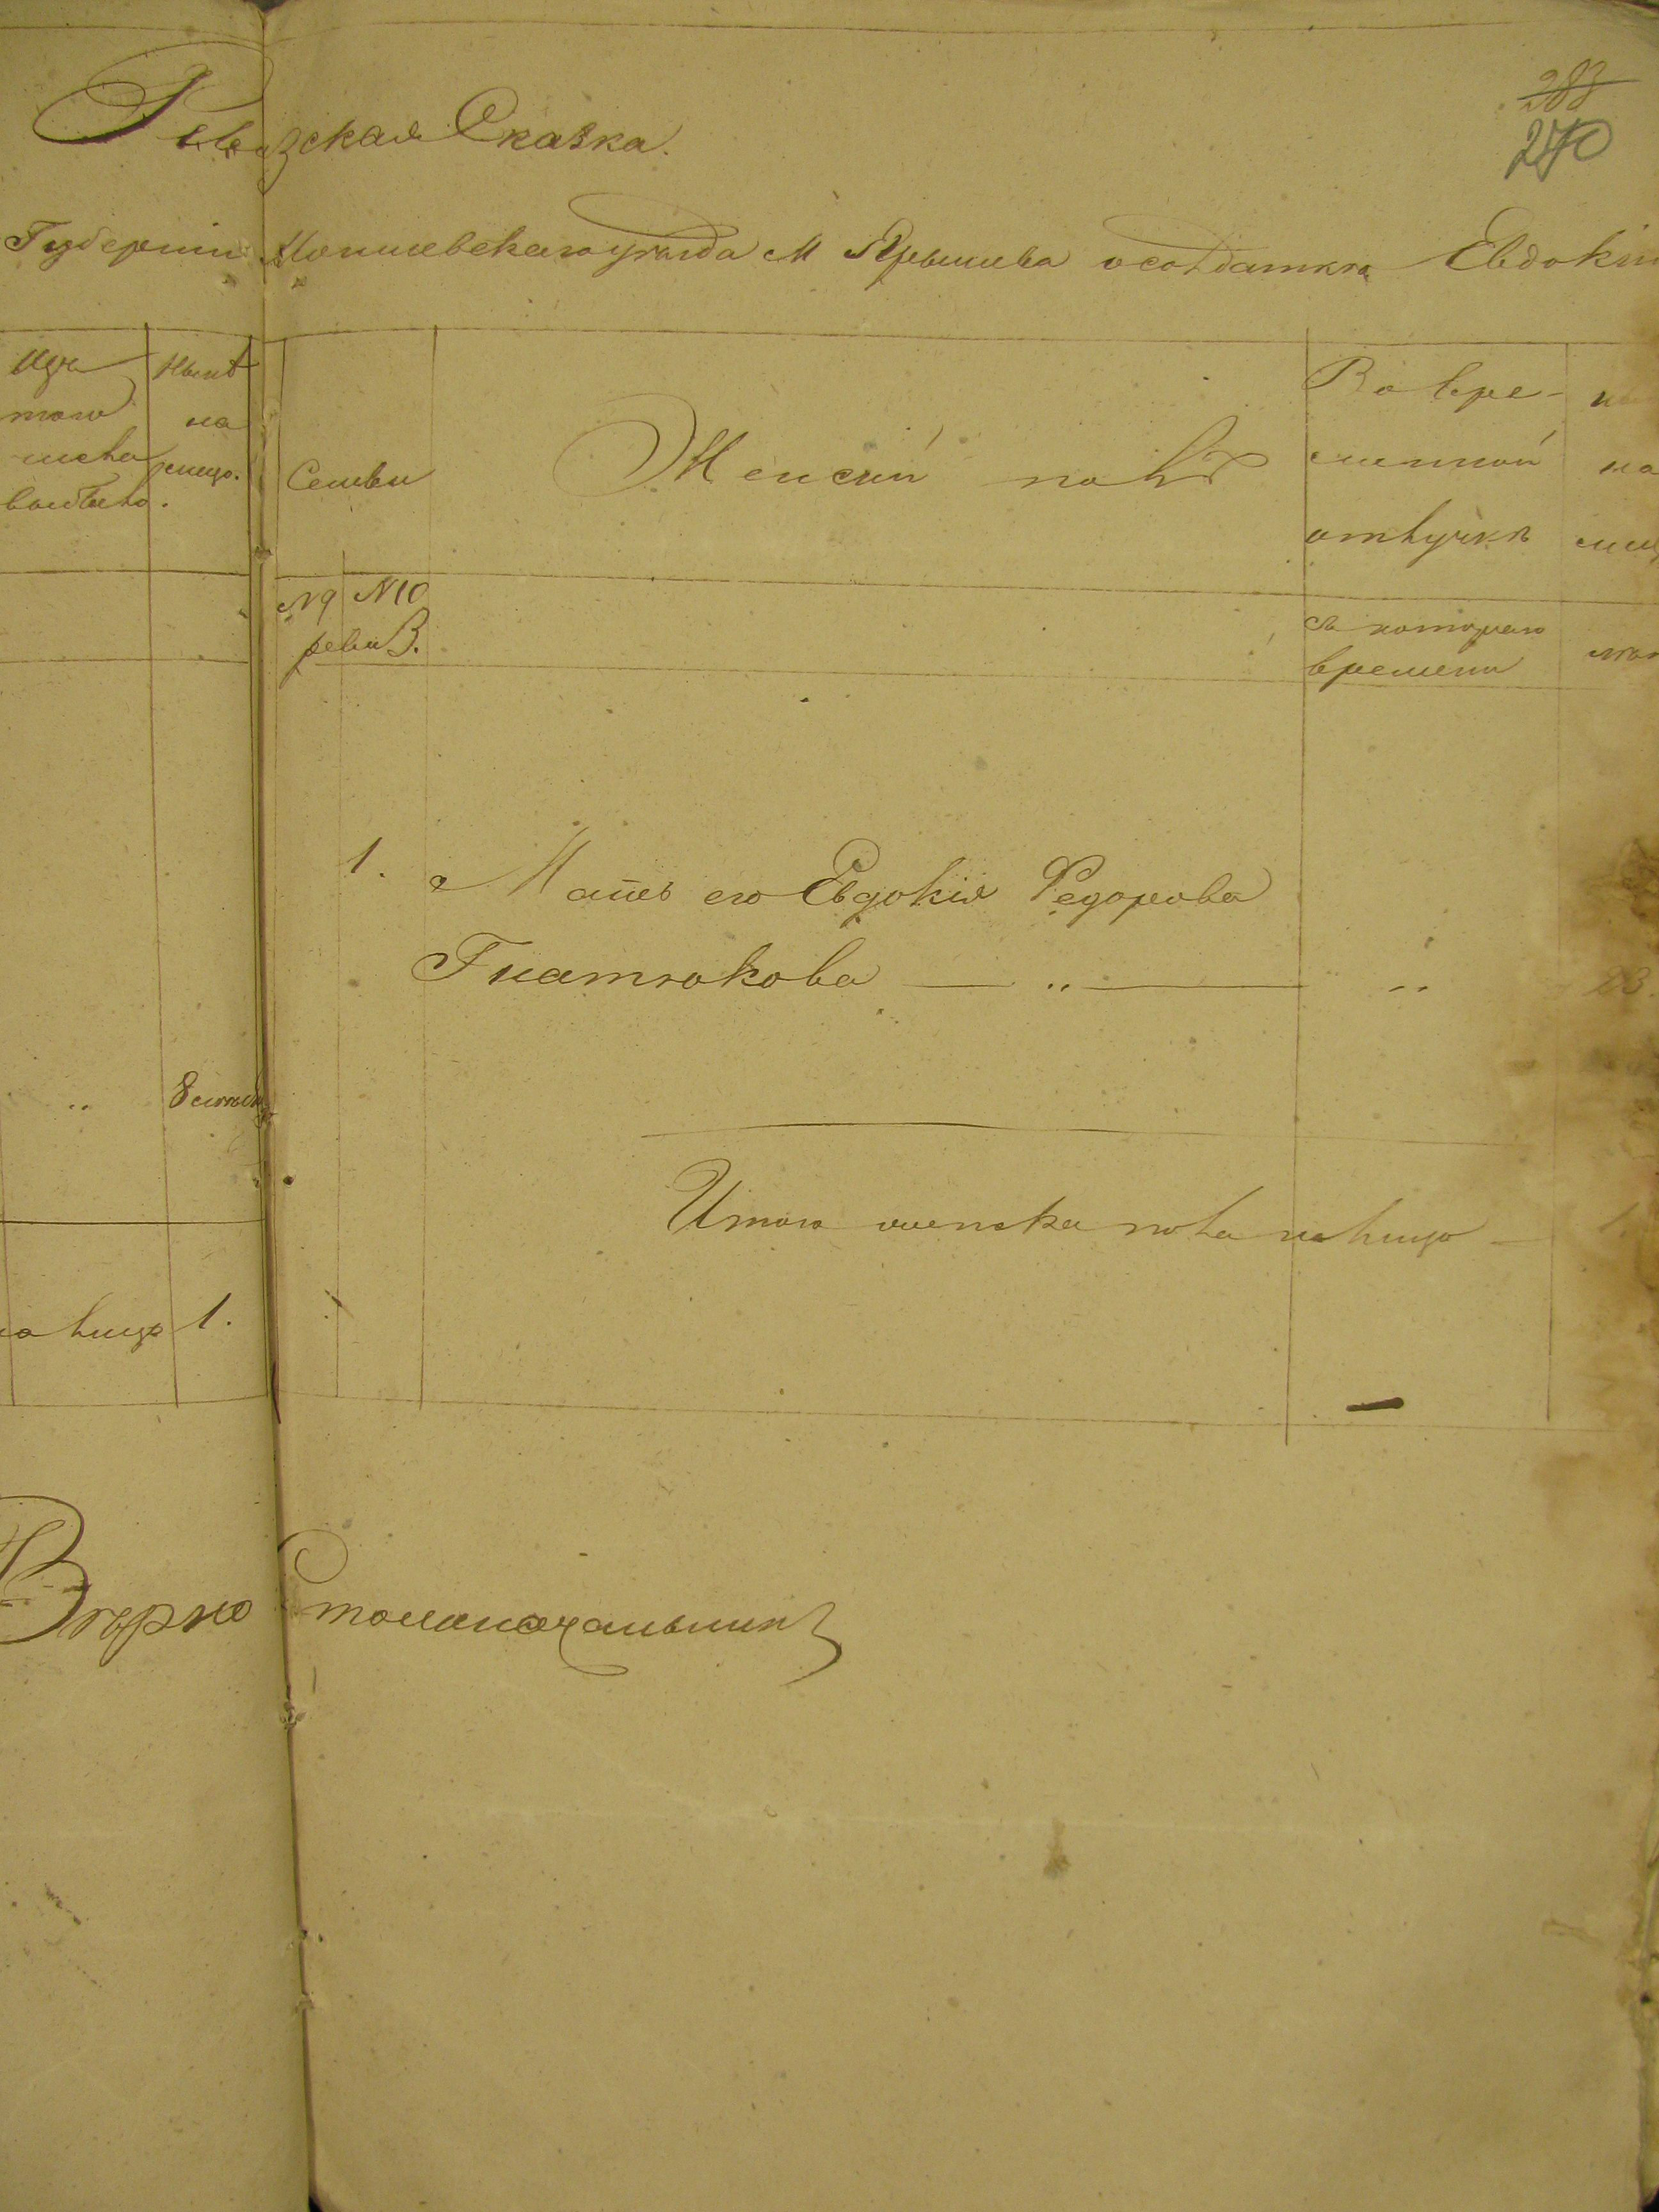 283
270
Ревизская Сказка.
Губернiи Могилевскаго уѣзда М Ярышева о солдаткѣ Евдокiи
Изъ
того
числа
выбыло.
Нынѣ
на
лицо.
Семьи
Женскiй полъ
Во вре-
менной
отлучкѣ
на
№9 №10
ревиз.
съ котораго
времени
1. Мать его Евдокiя Федорова
Гнатюкова — " — "
" 8
Итого женска пола на лицо — 1
на лицо 1.
Вѣрно Столоначальникъ